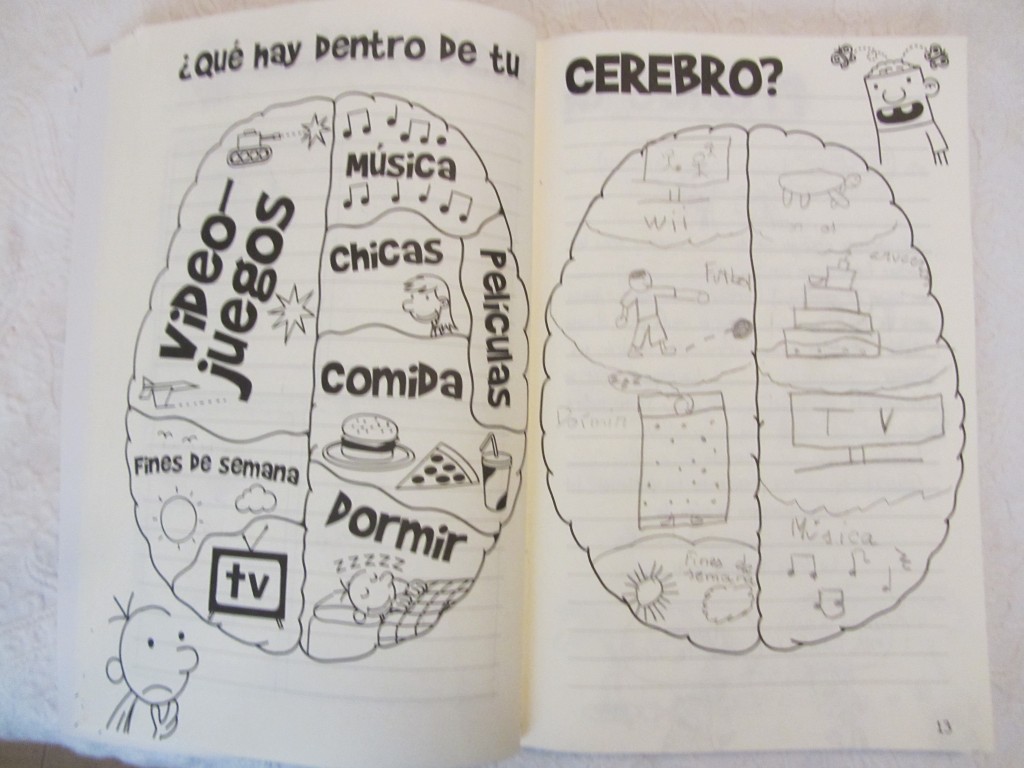 ¿Qué hay Dentro De tu
CEREBRO?
MÚSICA
VIDEO-
juegos
CHICAS
Películas
Comida
Fines De semana
Dormir
zzzzz
tv
wii
Dormir
TV
Música
Fines
semana
13